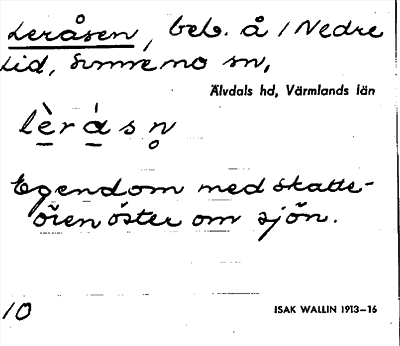 Leråsen, beb. å / Nedre
Lid, Sunnemo sn,
Älvdals hd, Värmlands län
lèråsn
Egendom med skatte-
ören öster om sjön.
10
ISAK WALLIN 1913–16